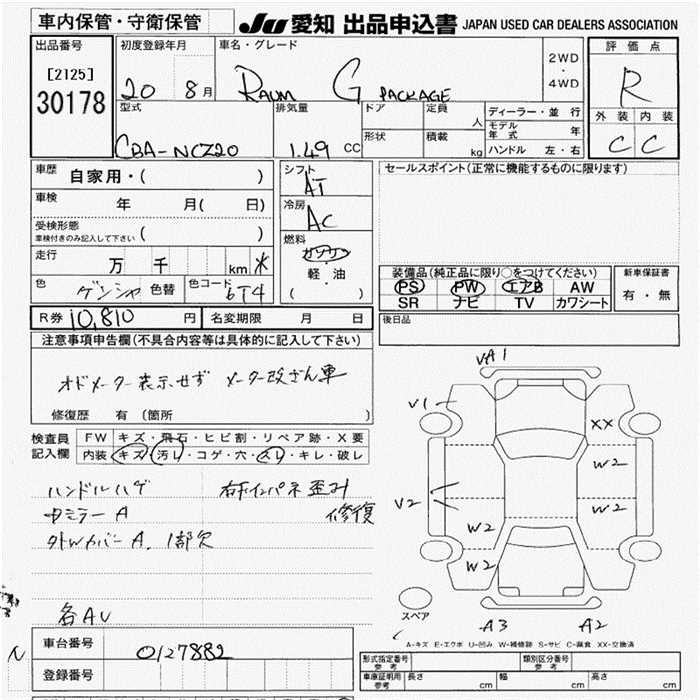 車内保管・守衛保管 JU 愛知 出品申込書 JAPAN USED CAR DEALERS ASSOCIATION
出品番号
[2125]
30178
初度登録年月
20 8月
車名・グレード
RAUM G PACKAGE
2WD
・
4WD
評価点
R
外装 内装
C C
型式
CBA-NCZ20
排気量
1.49 CC
ドア
定員
人
形状
積載
kg
ディーラー・並 行
モデル年式 年
ハンドル 左・右
車歴 自家用・( )
車検 年 月( 日)
受検形態
車検付きのみ記入して下さい ( )
走行 万 千 km
色 ゲンシャ 色替 色コード 6T4
シフト
AT
冷房
AC
燃料
ガソリン
軽・油
( )
セールスポイント(正常に機能するものに限ります)
装備品(純正品に限り○をつけてください)
PS PW エアB AW
SR ナビ TV カワシート
新車保証書
有・無
R券 10,810 円 名変期限 月 日
後日品
注意事項申告欄(不具合内容等は具体的に記入して下さい)
オドメーター表示せず メーター改ざん車
修復歴 有 (箇所 )
検査員
記入欄
FW キズ・飛石・ヒビ割・リペア跡・X要
内装 キズ・汚レ・コゲ・穴・スレ・キレ・破レ
ハンドルハゲ 右ドインパネ歪み
修復
中ミラーA
外Wカバー A. 1部欠
各AU
N
車台番号 0127882
登録番号
VA1
V1
XX
W2
V2
W2
W2
W2
A3
A2
スペア
A-キズ E-エクボ U-凹み W-補修跡 S-サビ C-腐食 XX-交換済
形式指定番号
参考
類別区分番号
参考
車庫証明用
参考
長さ cm 幅 cm 高さ cm